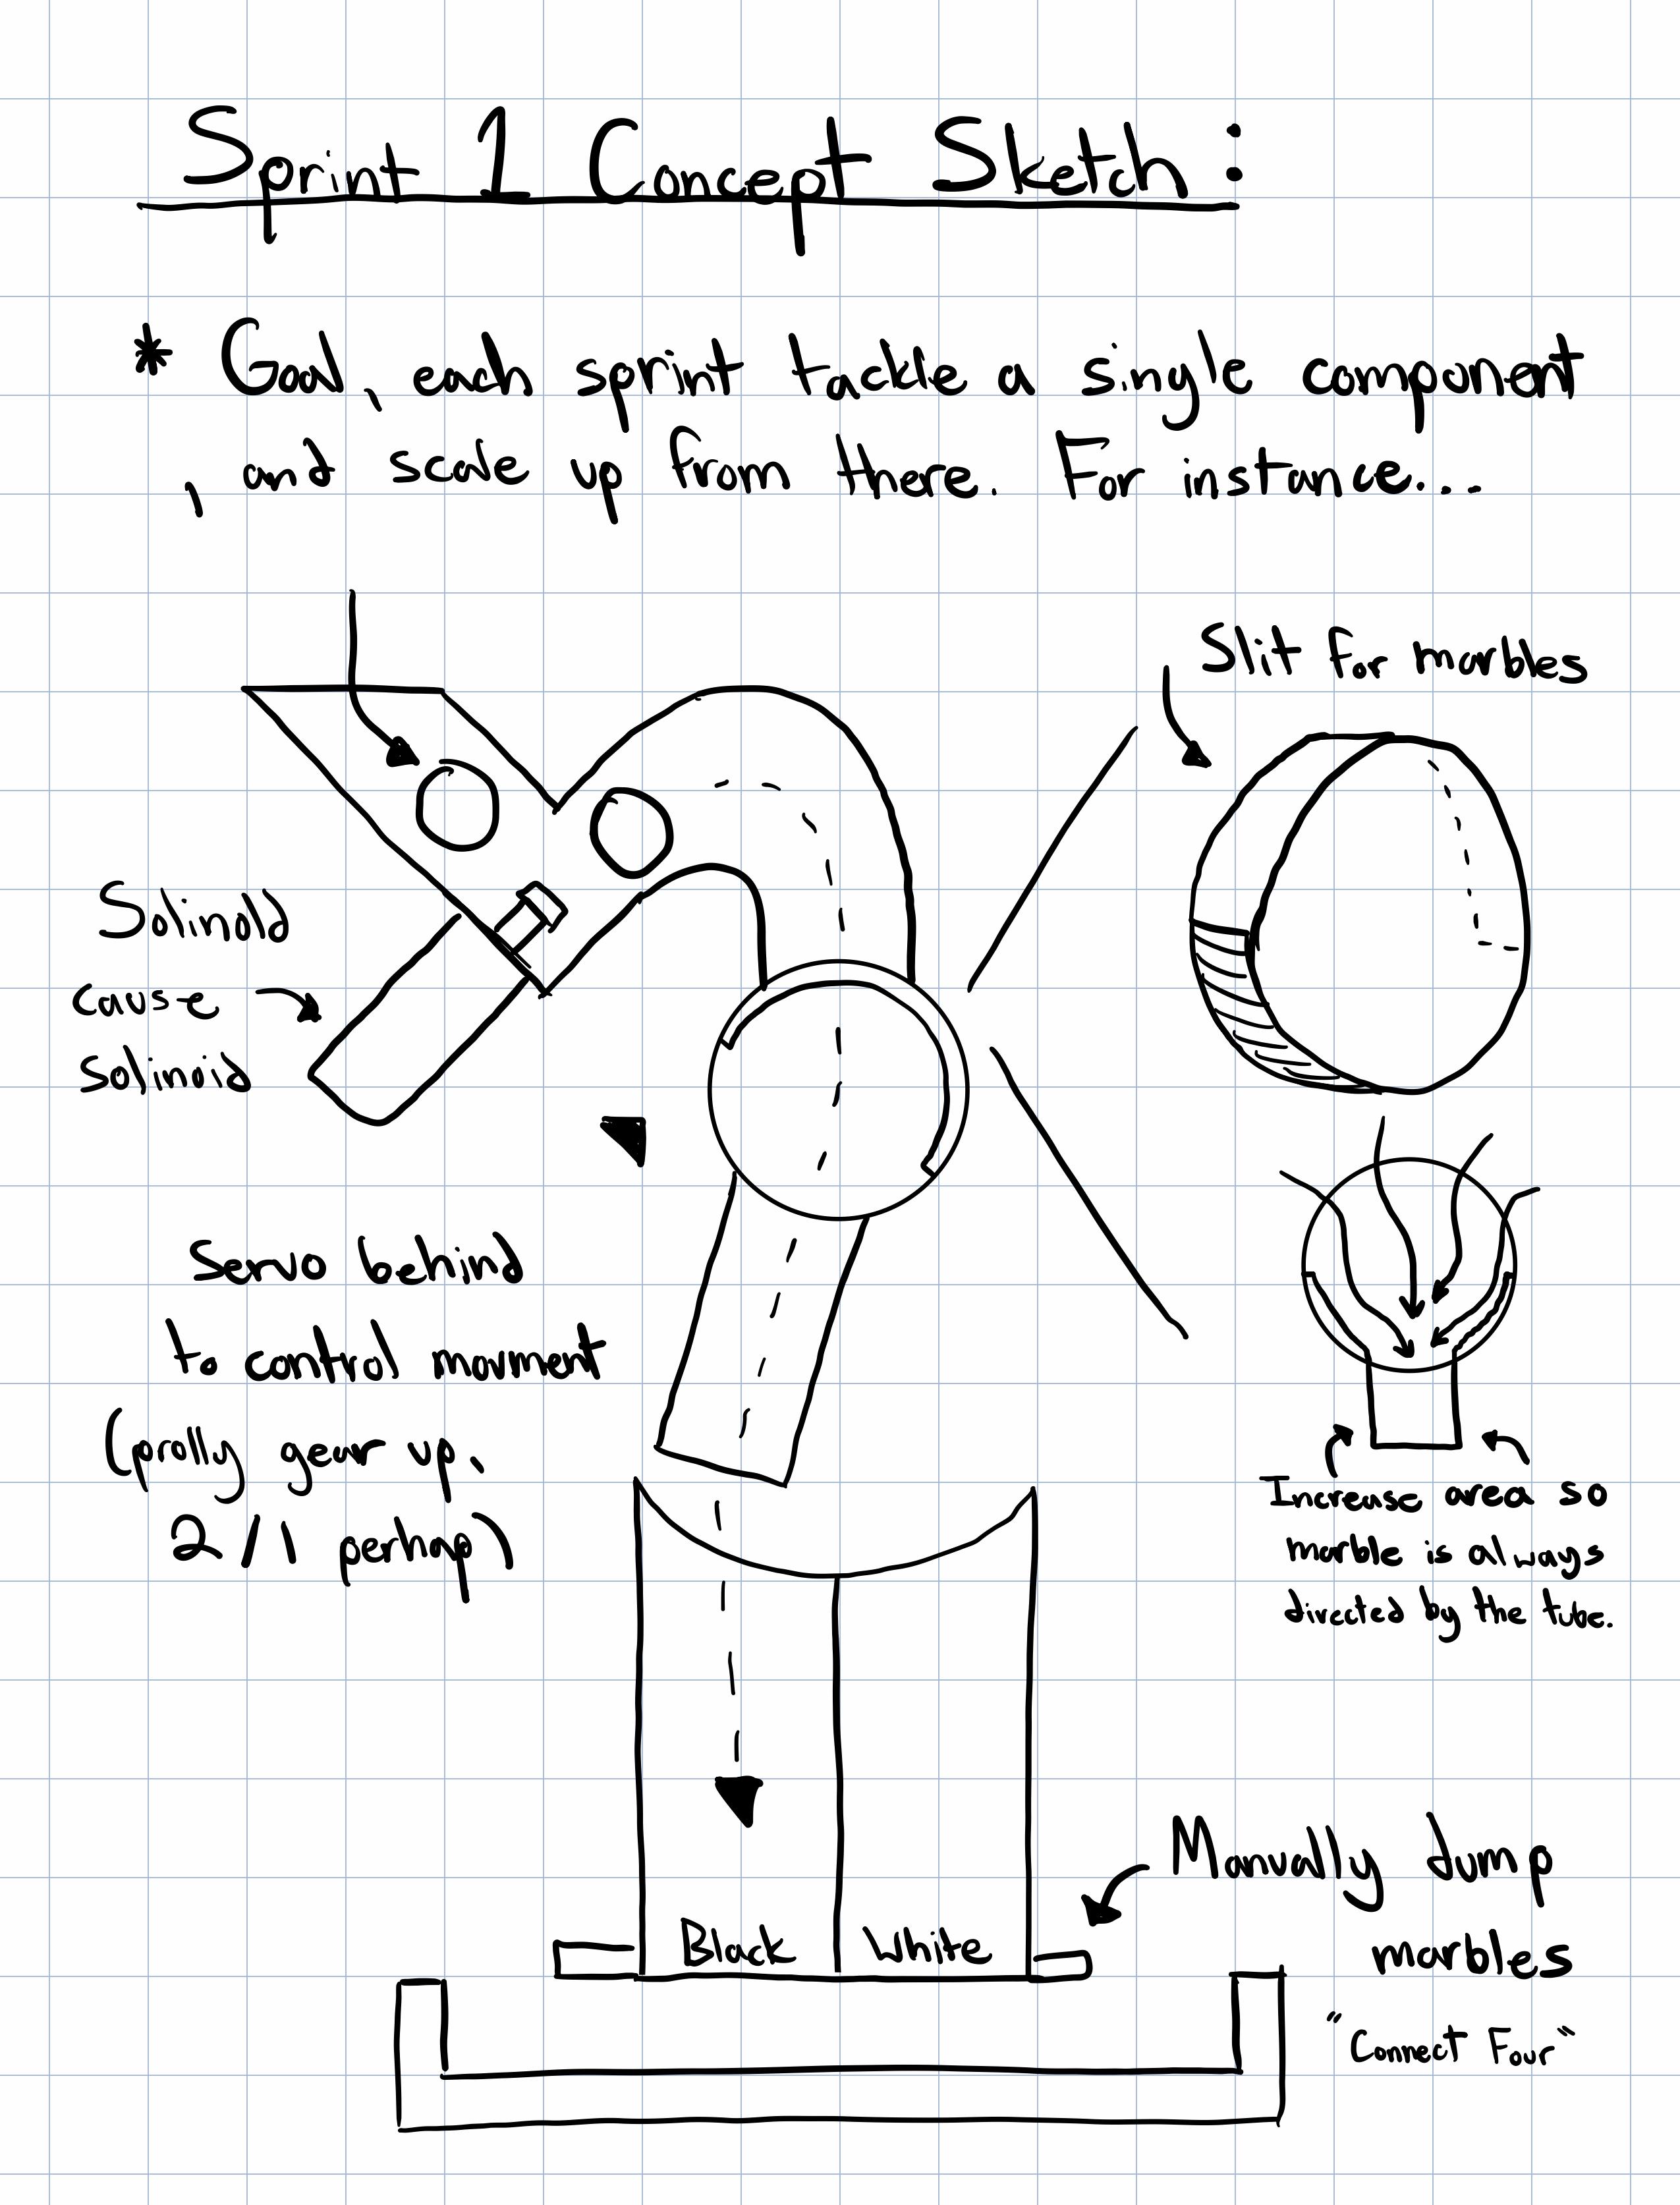 Sprint 1 Concept Sketch:
* Goal, each sprint tackle a single component
, and scale up from there. For instance...
Slit for marbles
Solinoid
cause
solinoid
Servo behind
to control movment
(prolly gear up,
2/1 perhap)
Increase area so
marble is always
directed by the tube.
Manually dump
marbles
"Connect Four"
Black White